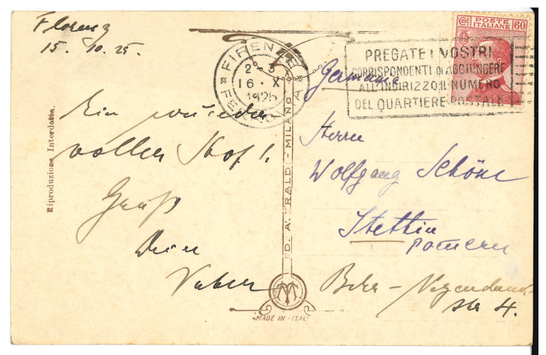 Florenz
15. 10. 25.
FIRENZE
FERROVIA
2°-3
16·X
1925
POSTE
ITALIANE
60
PREGATE I VOSTRI
CORRISPONDENTI DI AGGIUNGERE
ALL'INDIRIZZO IL NUMERO
DEL QUARTIERE POSTALE
Germania
Ein
voller
Gruß
Dein
Vater
Herrn
Wolfgang Schöne
Stettin
Pomern
str 4.
Riproduzione Interdetta.
D. A. RALDI - MILANO
MADE IN ITALY